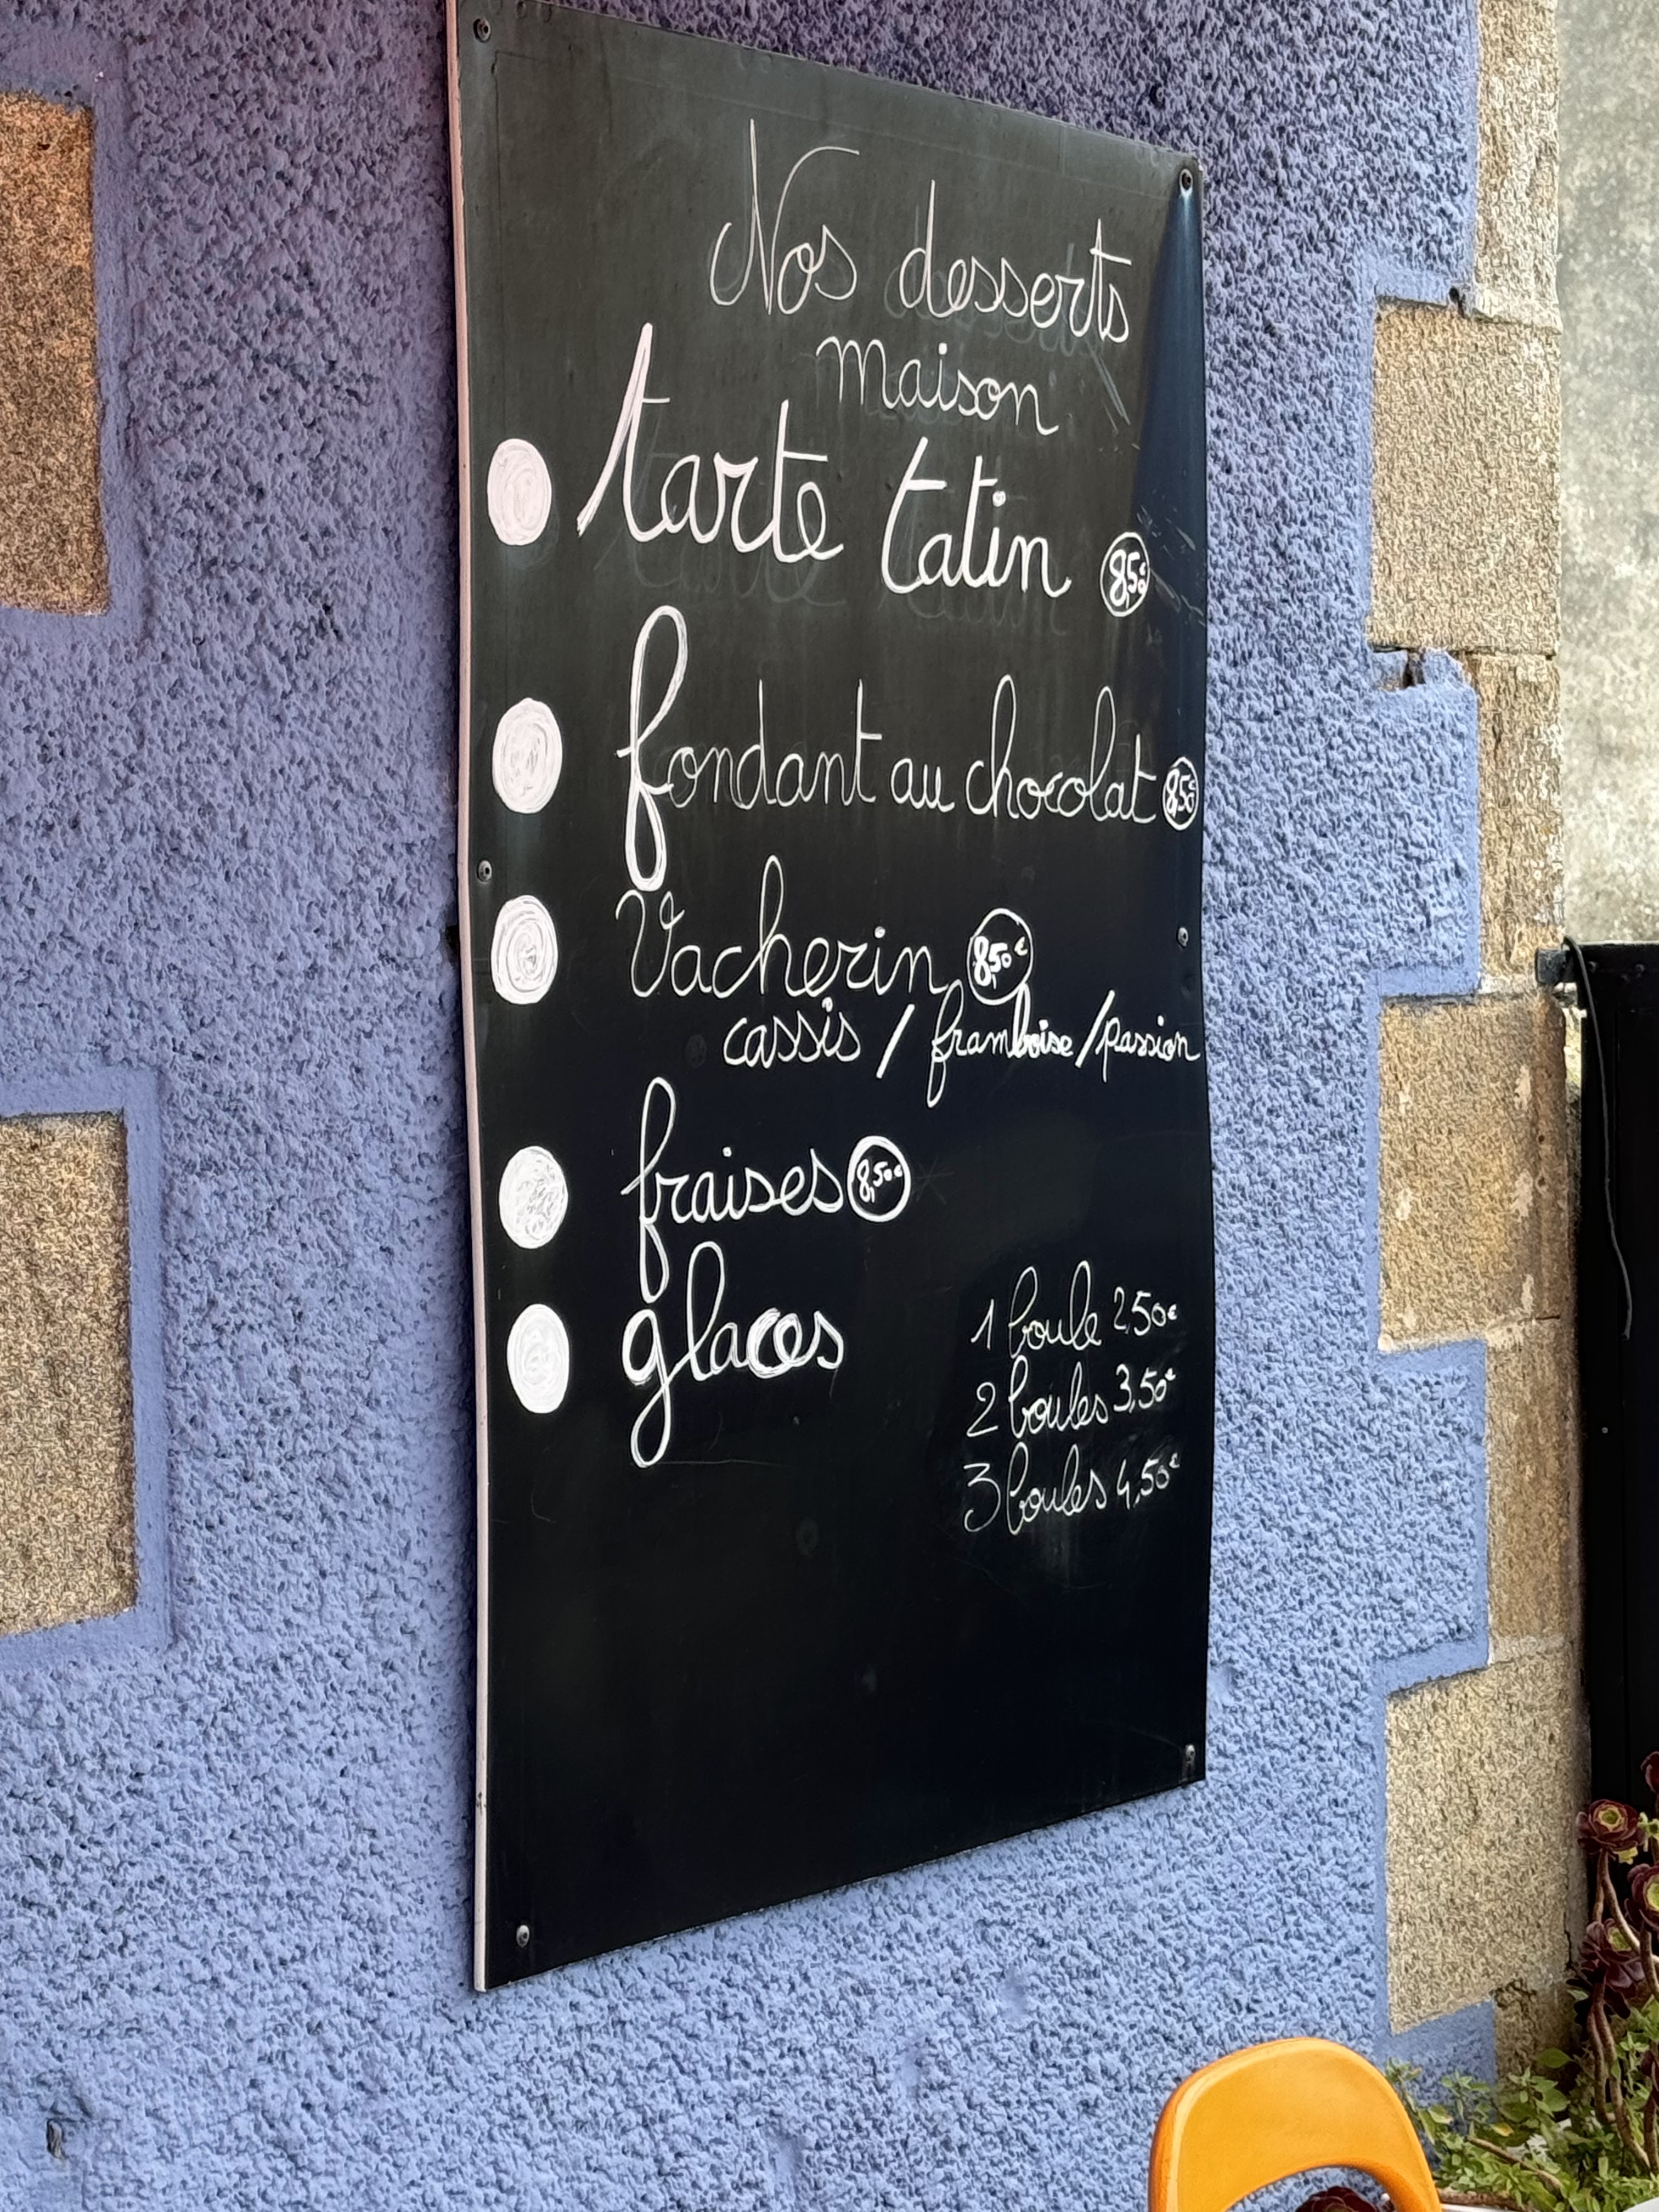 Nos desserts
maison
tarte tatin 8,50€
fondant au chocolat 8,50€
Vacherin 8,50€
cassis / framboise / passion
fraises 8,50€
glaces
1 boule 2,50€
2 boules 3,50€
3 boules 4,50€